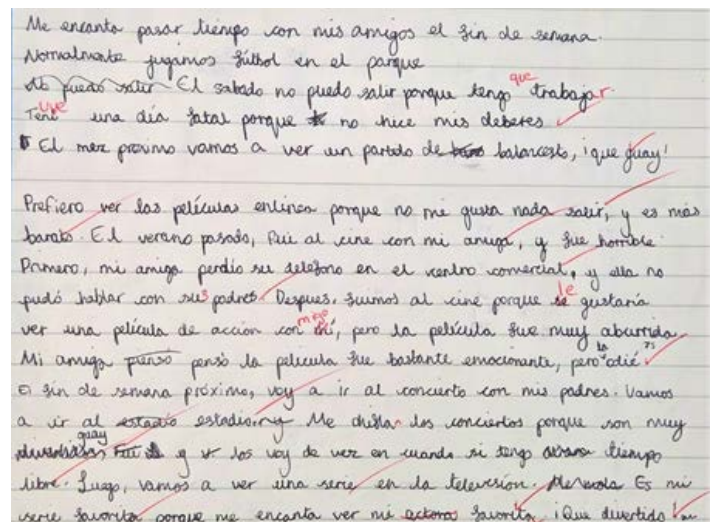 Me encanta pasar tiempo con mis amigos el fin de semana.
Normalmente jugamos fútbol en el parque
No puedo salir El sabado no puedo salir porque tengo que trabajar
Tení uve una día fatal porque no hice mis deberes
El mez proximo vamos a ver un partido de balancesto, ¡que guay!
Prefiero ver las películas enlinea porque no me gusta nada salir, y es más
barato. El verano pasado, Fui al cine con mi amiga, y fue horrible
Primero, mi amiga perdío su telefono en el centro comercial, y ella no
pudó hablar con sus padres. Despues. fuimos al cine porque se le gustaría
ver una película de acción con mí migo, pero la película fue muy aburrida.
Mi amiga piensó pensó la pelicula fue bastante emocionante, pero la odié.
El fin de semana próximo, voy a ir al concierto con mis padres. Vamos
a ir al estadio estadio. y Me chifla los conciertos porque son muy
guay y los voy de vez en cuando si tengo tiempo
libre. Luego, vamos a ver una serie en la televisión. Es mi
serie favorita porque me encanta ver mi actora favorita. ¡Que divertida!